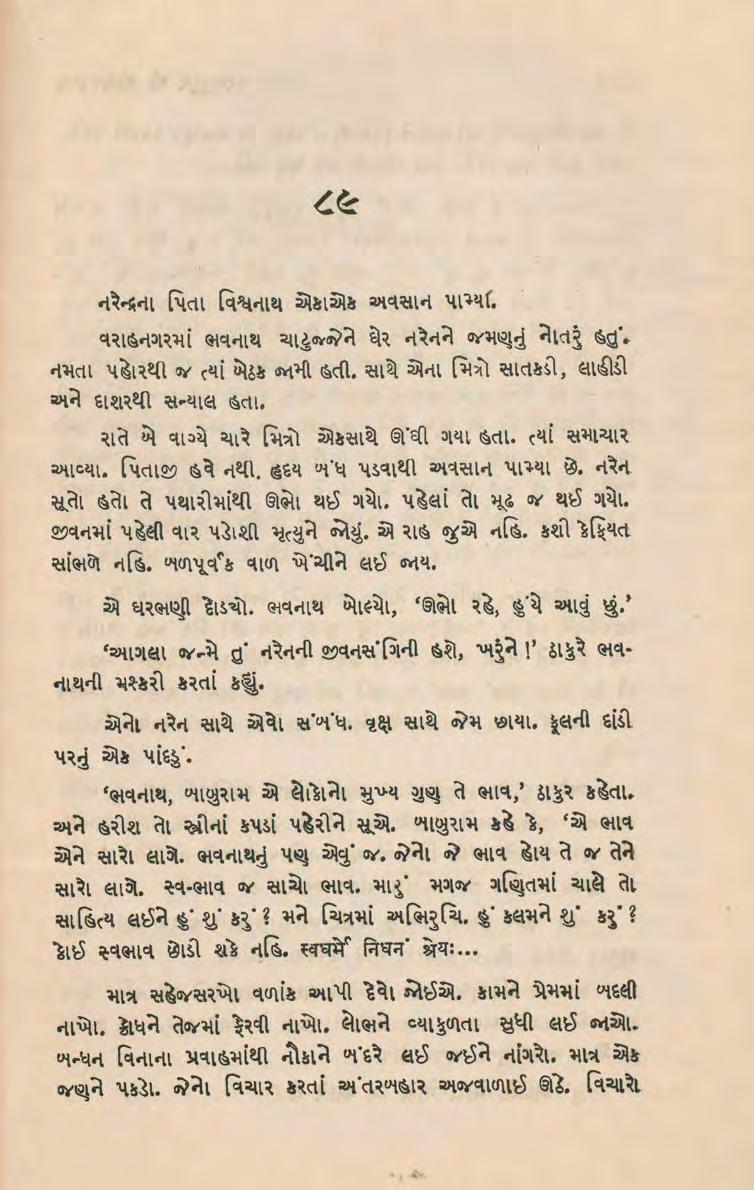 ૮૯
નરેન્દ્રના પિતા વિશ્વનાથ એકાએક અવસાન પામ્યા.
વરાહનગરમાં ભવનાથ ચાટુજ્જેને ઘેર નરેનને જમણનું નોતરું હતું.
નમતા પહોરથી જ ત્યાં બેઠક જામી હતી. સાથે એના મિત્રો સાતકડી, લાહીડી
અને દાશરથી સન્યાલ હતા.
રાતે બે વાગ્યે ચારે મિત્રો એકસાથે ઊંઘી ગયા હતા. ત્યાં સમાચાર
આવ્યા. પિતાજી હવે નથી. હૃદય બંધ પડવાથી અવસાન પામ્યા છે. નરેન
સૂતો હતો તે પથારીમાંથી ઊભો થઈ ગયો. પહેલાં તો મૂઢ જ થઈ ગયો.
જીવનમાં પહેલી વાર પડોશી મૃત્યુને જોયું. એ રાહ જુએ નહિ. કશી કેફિયત
સાંભળે નહિ. બળપૂર્વક વાળ ખેંચીને લઈ જાય.
એ ઘરભણી દોડ્યો. ભવનાથ બોલ્યો, ‘ઊભો રહે, હુંયે આવું છું.’
‘આગલા જન્મે તું નરેનની જીવનસંગિની હશે, ખરુંને!’ ઠાકુરે ભવ-
નાથની મશ્કરી કરતાં કહ્યું.
એનો નરેન સાથે એવો સંબંધ. વૃક્ષ સાથે જેમ છાયા. ફૂલની દાંડી
પરનું એક પાંદડું.
‘ભવનાથ, બાબુરામ એ લોકોનો મુખ્ય ગુણ તે ભાવ,’ ઠાકુર કહેતા.
અને હરીશ તો સ્ત્રીનાં કપડાં પહેરીને સૂએ. બાબુરામ કહે કે, ‘એ ભાવ
એને સારો લાગે. ભવનાથનું પણ એવું જ. જેનો જે ભાવ હોય તે જ તેને
સારો લાગે. સ્વ-ભાવ જ સાચો ભાવ. મારું મગજ ગણિતમાં ચાલે તો
સાહિત્ય લઈને હું શું કરું? મને ચિત્રમાં અભિરુચિ. હું કલમને શું કરું?
કોઈ સ્વભાવ છોડી શકે નહિ. स्वधर्मे निधनं श्रेयः...
માત્ર સહેજસરખો વળાંક આપી દેવો જોઈએ. કામને પ્રેમમાં બદલી
નાખો. ક્રોધને તેજમાં ફેરવી નાખો. લોભને વ્યાકુળતા સુધી લઈ જાઓ.
બન્ધન વિનાના પ્રવાહમાંથી નૌકાને બંદરે લઈ જઈને નાંગરો. માત્ર એક
જણને પકડો. જેનો વિચાર કરતાં અંતરબહાર અજવાળાઈ ઊઠે. વિચારો